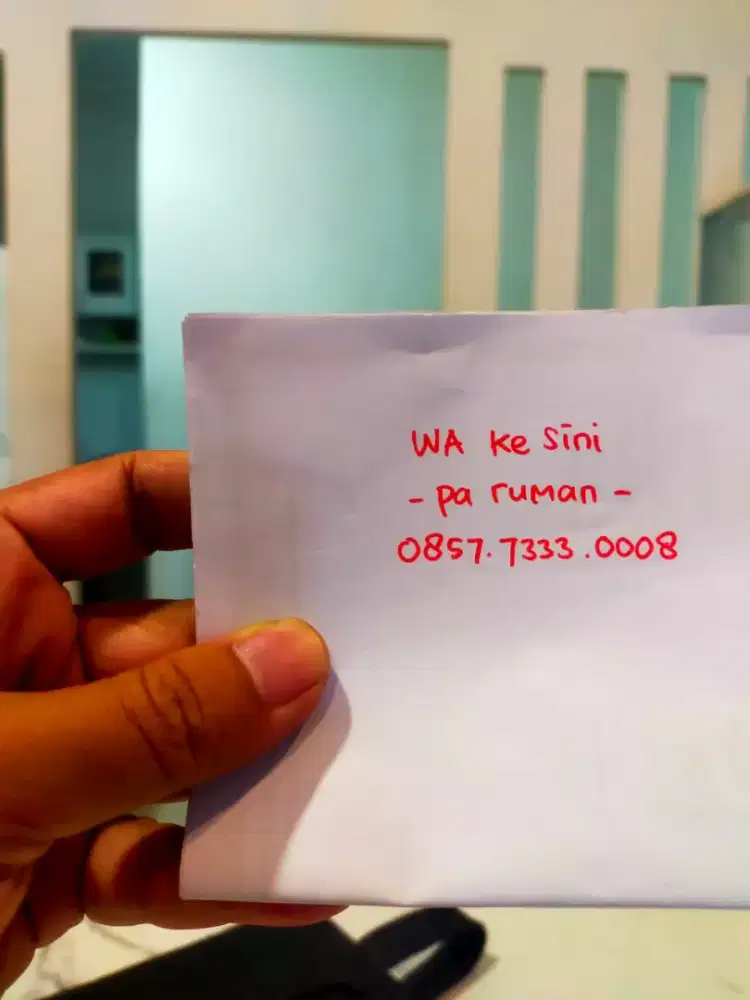 WA ke sini
- pa ruman -
0857.7333.0008